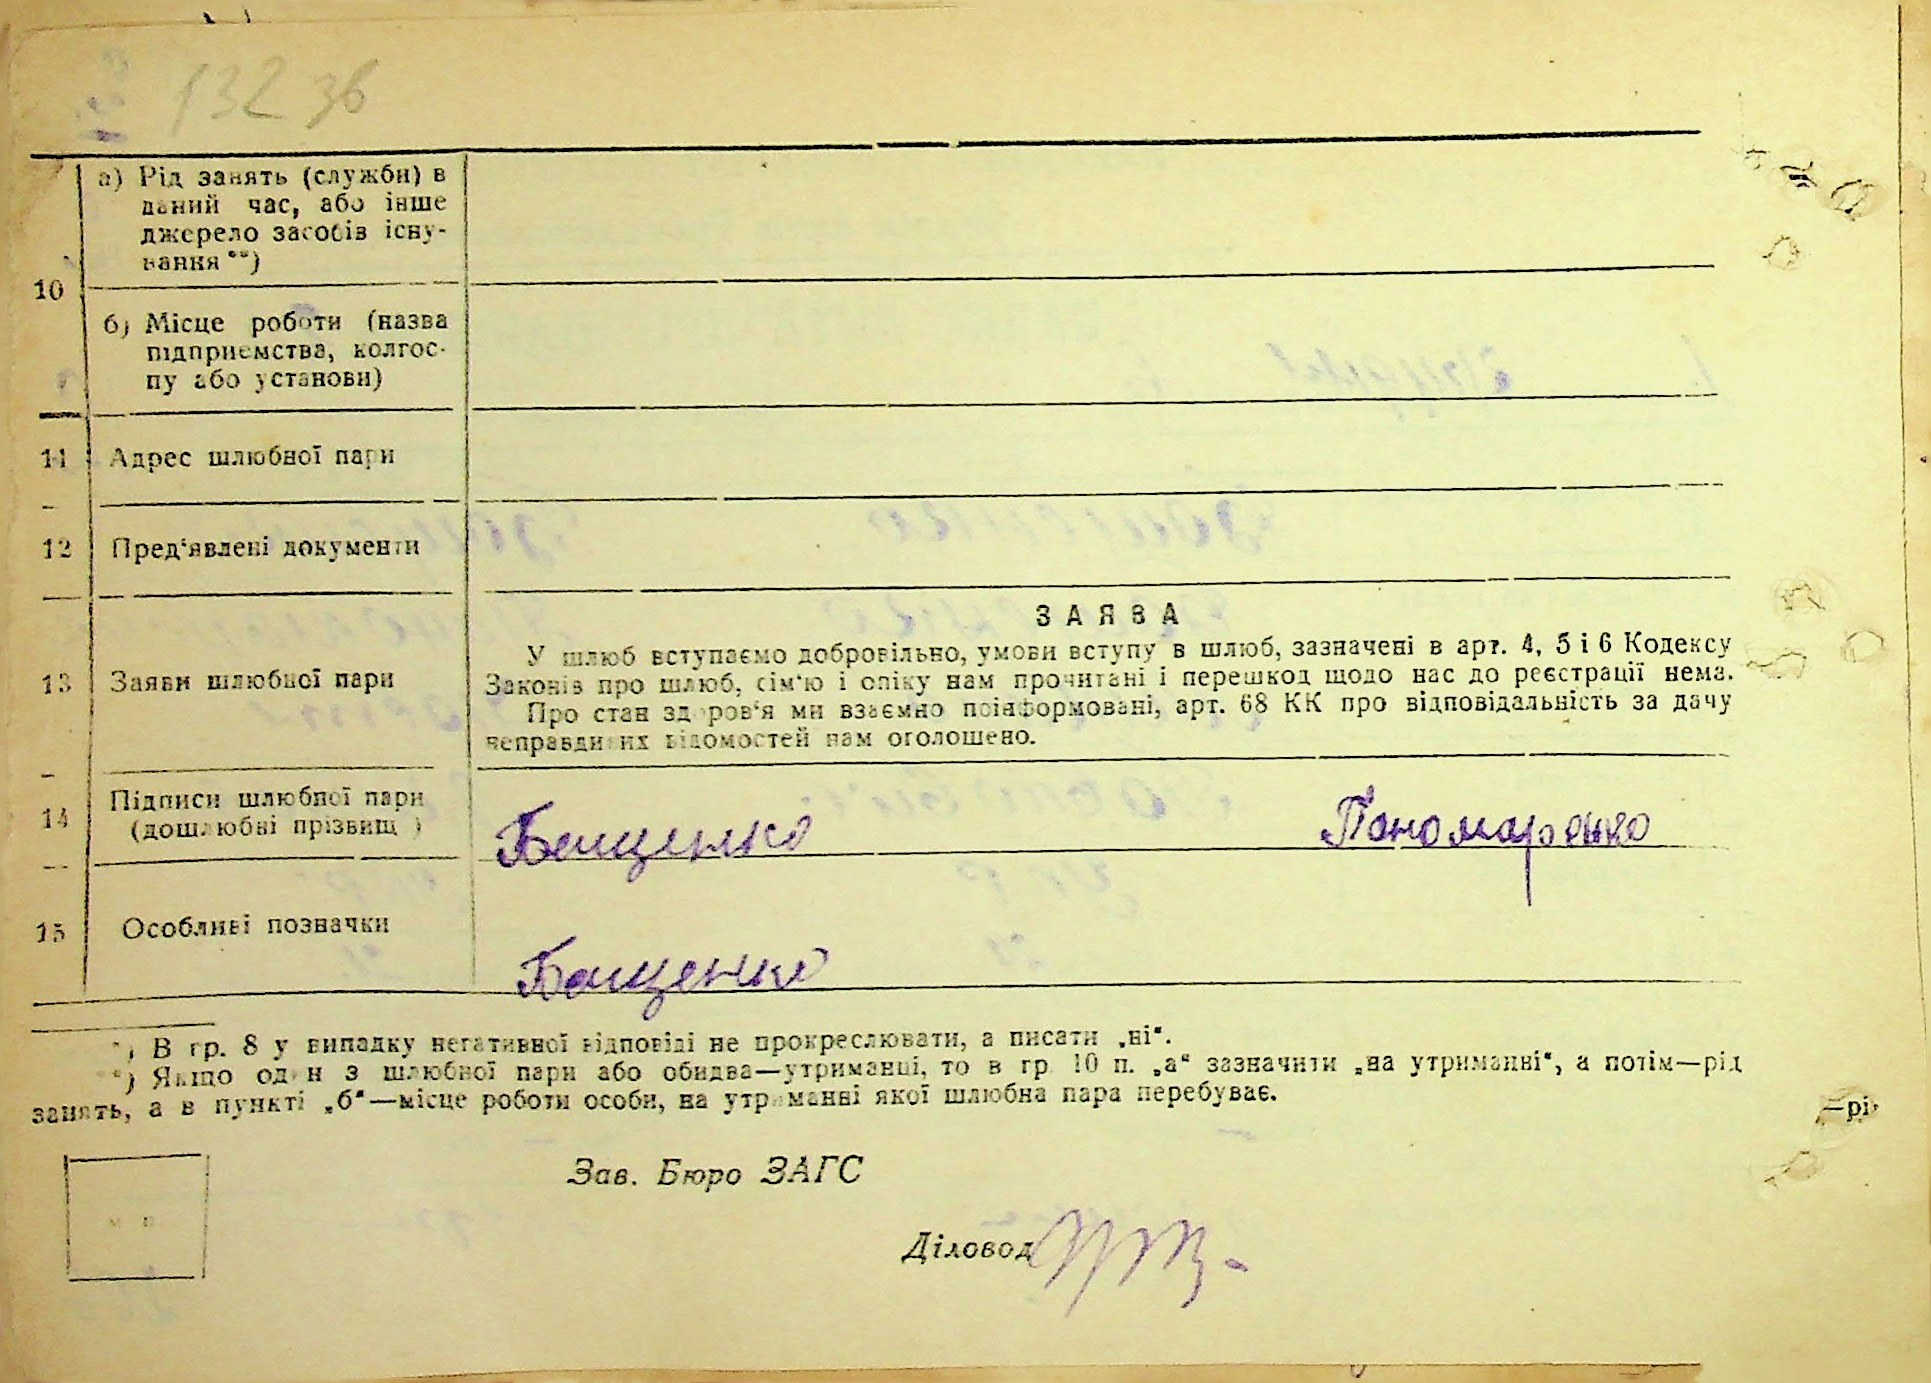 132 зв
а) Рід занять (служби) в
даний час, або інше
джерело засобів існу-
вання **)
10
б) Місце роботи (назва
підприємства, колгос-
пу або установи)
11 Адрес шлюбної пари
12 Пред'явлені документи
ЗАЯВА
У шлюб вступаємо добровільно, умови вступу в шлюб, зазначені в арт. 4, 5 і 6 Кодексу
13 Заяви шлюбної пари Законів про шлюб, сім'ю і опіку нам прочитані і перешкод щодо нас до реєстрації нема.
Про стан здоров'я ми взаємно поінформовані, арт. 68 КК про відповідальність за дачу
неправдивих відомостей нам оголошено.
14 Підписи шлюбної пари
(дошлюбні прізвищ )
Бащенко Пономаренко
15 Особливі позначки
Бащенко
*) В гр. 8 у випадку негативної відповіді не прокреслювати, а писати „ні“.
**) Якщо один з шлюбної пари або обидва—утриманці, то в гр. 10 п. „а“ зазначити „на утриманні“, а потім—рід
занять, а в пункті „б“—місце роботи особи, на утриманні якої шлюбна пара перебуває.
—рі
Зав. Бюро ЗАГС
м п
Діловод